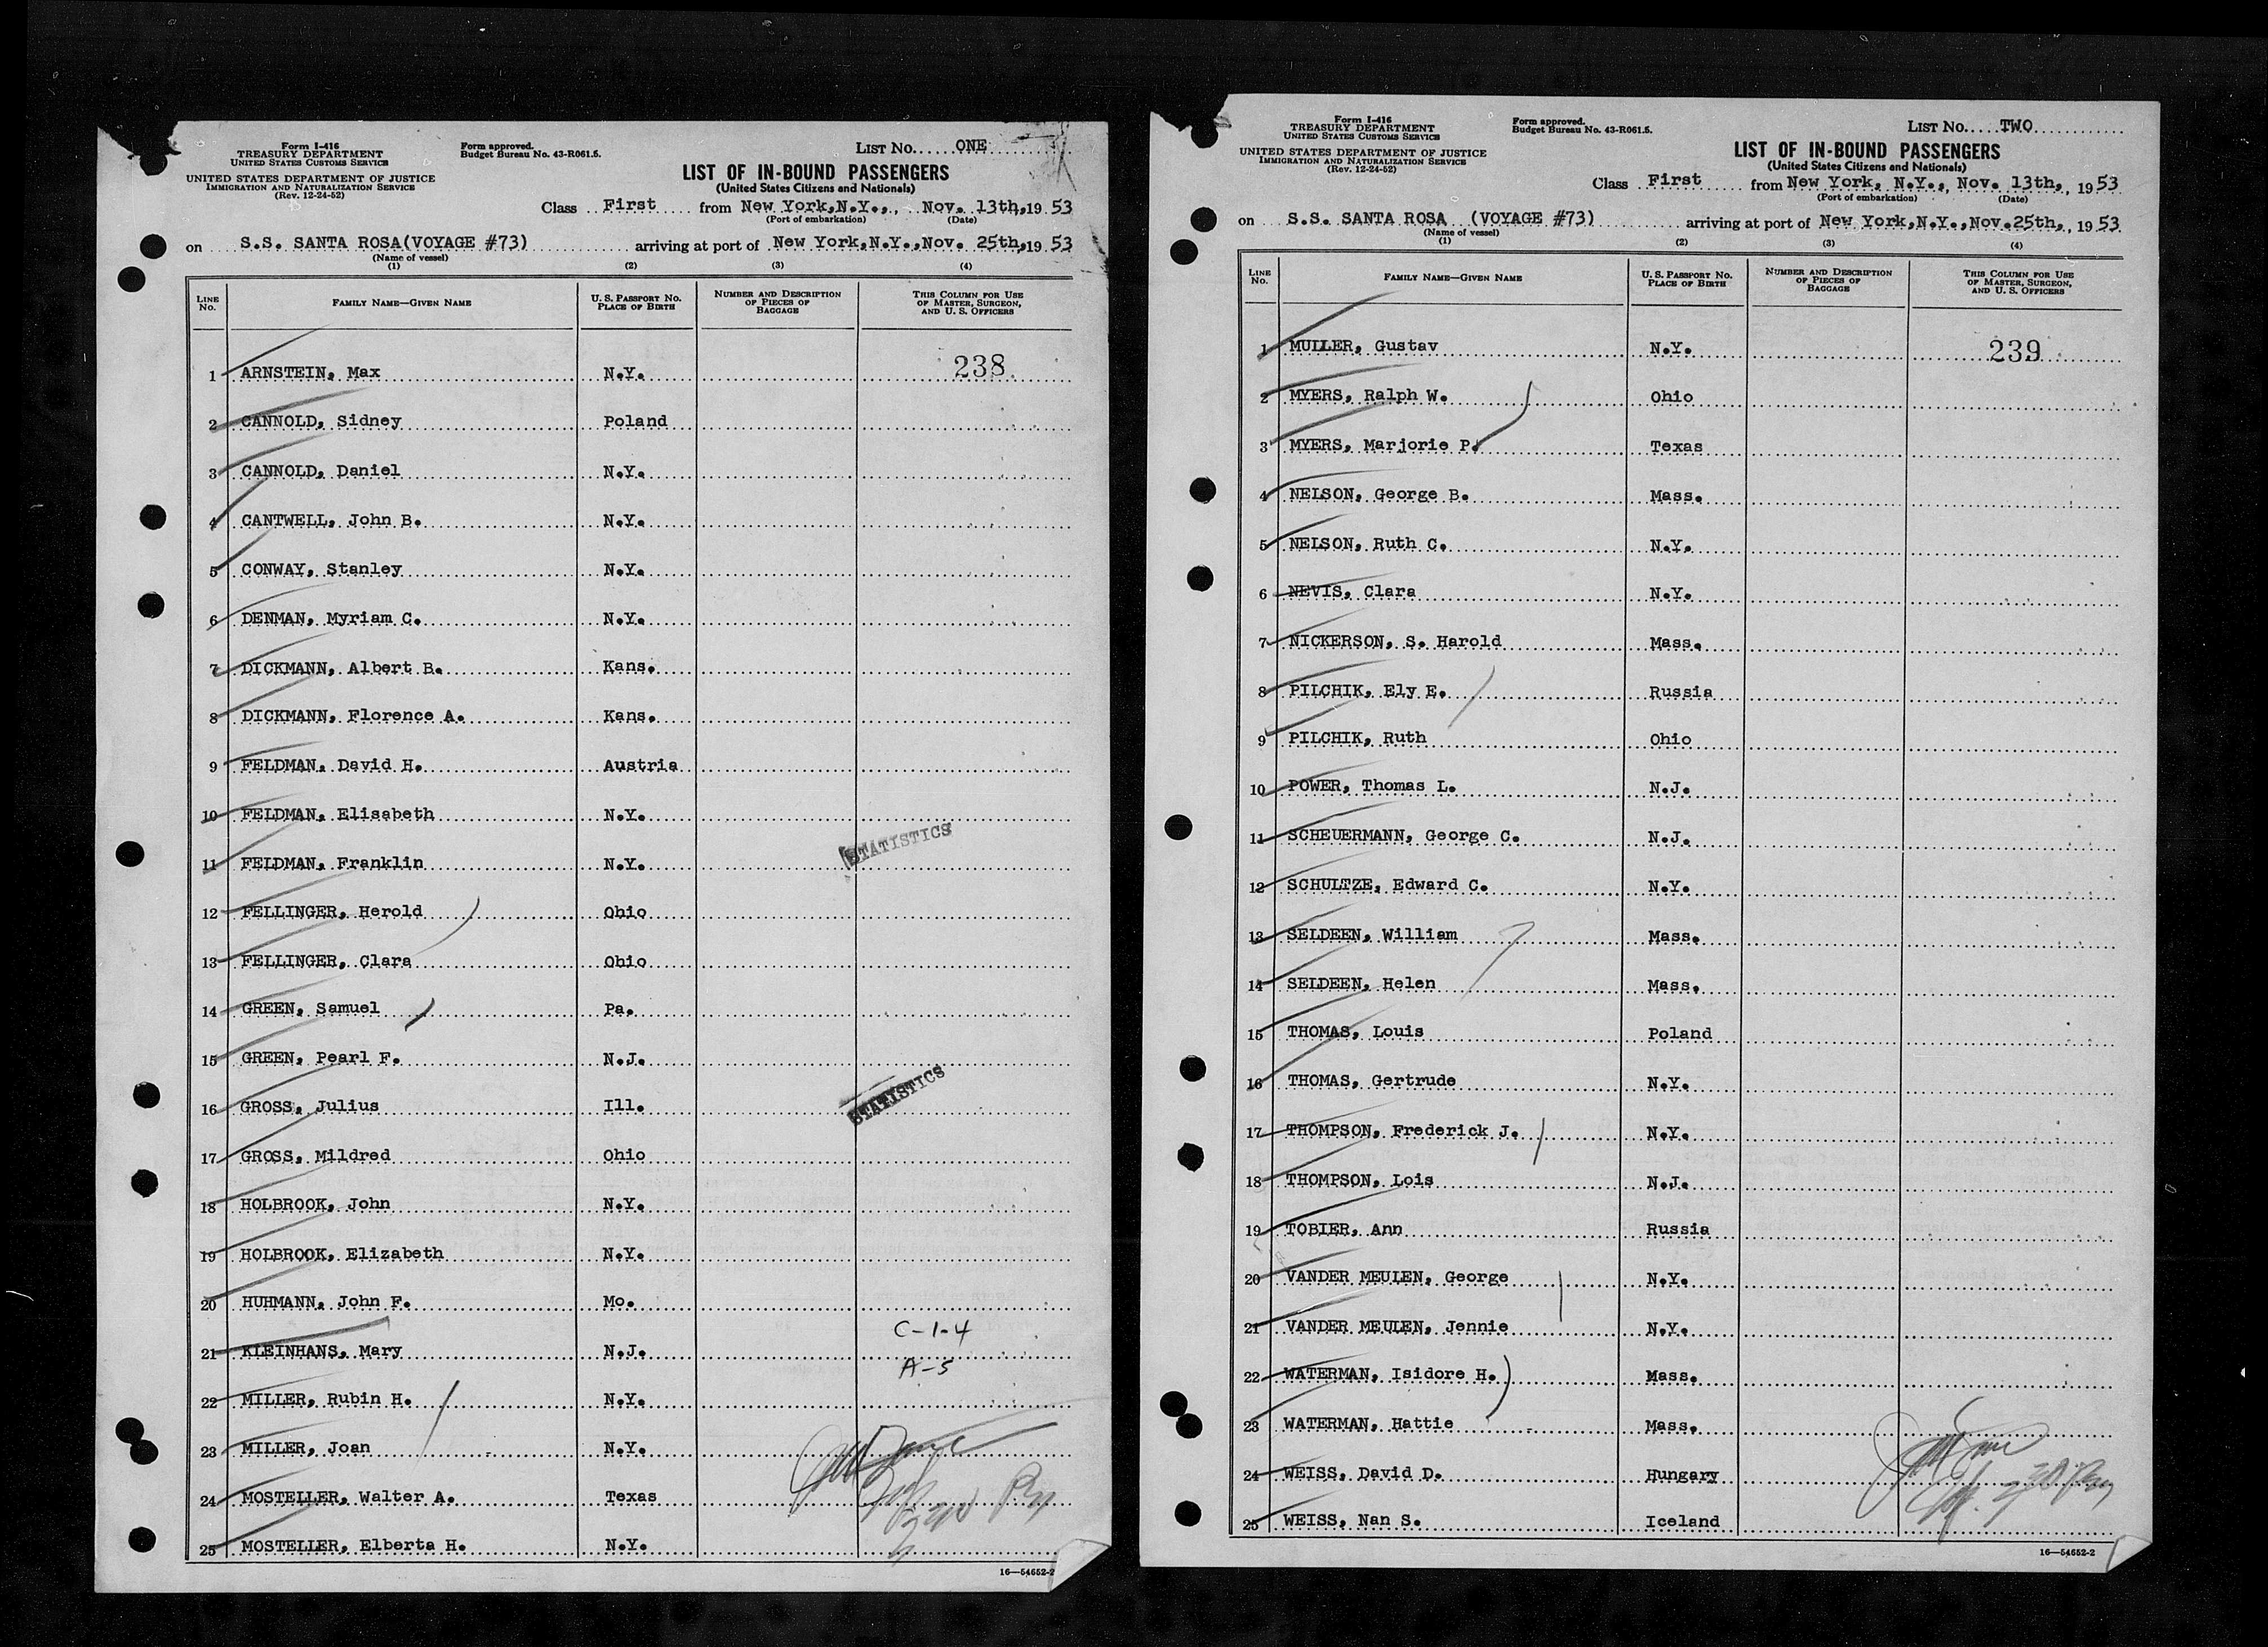 Form I-416
TREASURY DEPARTMENT
UNITED STATES CUSTOMS SERVICE
UNITED STATES DEPARTMENT OF JUSTICE
IMMIGRATION AND NATURALIZATION SERVICE
(Rev. 12-24-52)
Form approved.
Budget Bureau No. 43-R061.5.
LIST No. ONE
LIST OF IN-BOUND PASSENGERS
(United States Citizens and Nationals)
Class First from New York,N.Y., Nov. 13th,19 53
(Port of embarkation) (Date)
on S.S. SANTA ROSA(VOYAGE #73) arriving at port of New York,N.Y.,Nov. 25th,19 53
(Name of vessel)
(1) (2) (3) (4)
LINE No. FAMILY NAME—GIVEN NAME U. S. PASSPORT No. PLACE OF BIRTH NUMBER AND DESCRIPTION OF PIECES OF BAGGAGE THIS COLUMN FOR USE OF MASTER, SURGEON, AND U. S. OFFICERS
1 ARNSTEIN, Max N.Y. 238
2 CANNOLD, Sidney Poland
3 CANNOLD, Daniel N.Y.
4 CANTWELL, John B. N.Y.
5 CONWAY, Stanley N.Y.
6 DENMAN, Myriam C. N.Y.
7 DICKMANN, Albert B. Kans.
8 DICKMANN, Florence A. Kans.
9 FELDMAN, David H. Austria
10 FELDMAN, Elisabeth N.Y.
STATISTICS
11 FELDMAN, Franklin N.Y.
12 FELLINGER, Herold Ohio
13 FELLINGER, Clara Ohio
14 GREEN, Samuel Pa.
15 GREEN, Pearl F. N.J.
STATISTICS
16 GROSS, Julius Ill.
17 GROSS, Mildred Ohio
18 HOLBROOK, John N.Y.
19 HOLBROOK, Elizabeth N.Y.
20 HUHMANN, John F. Mo.
C-1-4
21 KLEINHANS, Mary N.J.
A-5
22 MILLER, Rubin H. N.Y.
23 MILLER, Joan N.Y.
24 MOSTELLER, Walter A. Texas
25 MOSTELLER, Elberta H. N.Y.
16—54652-2
Form I-416
TREASURY DEPARTMENT
UNITED STATES CUSTOMS SERVICE
UNITED STATES DEPARTMENT OF JUSTICE
IMMIGRATION AND NATURALIZATION SERVICE
(Rev. 12-24-52)
Form approved.
Budget Bureau No. 43-R061.5.
LIST No. TWO
LIST OF IN-BOUND PASSENGERS
(United States Citizens and Nationals)
Class First from New York, N.Y., Nov. 13th, , 19 53
(Port of embarkation) (Date)
on S.S. SANTA ROSA (VOYAGE #73) arriving at port of New York,N.Y.,Nov.25th, , 19 53
(Name of vessel)
(1) (2) (3) (4)
LINE No. FAMILY NAME—GIVEN NAME U. S. PASSPORT No. PLACE OF BIRTH NUMBER AND DESCRIPTION OF PIECES OF BAGGAGE THIS COLUMN FOR USE OF MASTER, SURGEON, AND U. S. OFFICERS
1 MULLER, Gustav N.Y. 239
2 MYERS, Ralph W. Ohio
3 MYERS, Marjorie P. Texas
4 NELSON, George B. Mass.
5 NELSON, Ruth C. N.Y.
6 NEVIS, Clara N.Y.
7 NICKERSON, S. Harold Mass.
8 PILCHIK, Ely E. Russia
9 PILCHIK, Ruth Ohio
10 POWER, Thomas L. N.J.
11 SCHEUERMANN, George C. N.J.
12 SCHULTZE, Edward C. N.Y.
13 SELDEEN, William Mass.
14 SELDEEN, Helen Mass.
15 THOMAS, Louis Poland
16 THOMAS, Gertrude N.Y.
17 THOMPSON, Frederick J. N.Y.
18 THOMPSON, Lois N.J.
19 TOBIER, Ann Russia
20 VANDER MEULEN, George N.Y.
21 VANDER MEULEN, Jennie N.Y.
22 WATERMAN, Isidore H. Mass.
23 WATERMAN, Hattie Mass.
24 WEISS, David D. Hungary
25 WEISS, Nan S. Iceland
16—54652-2